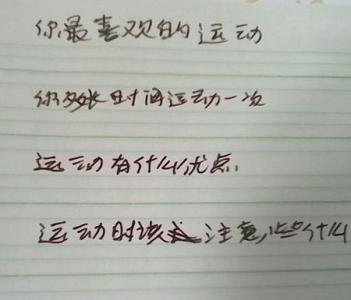 你最喜欢的运动
你多长时间运动一次
运动有什么优点
运动时该注意些什么